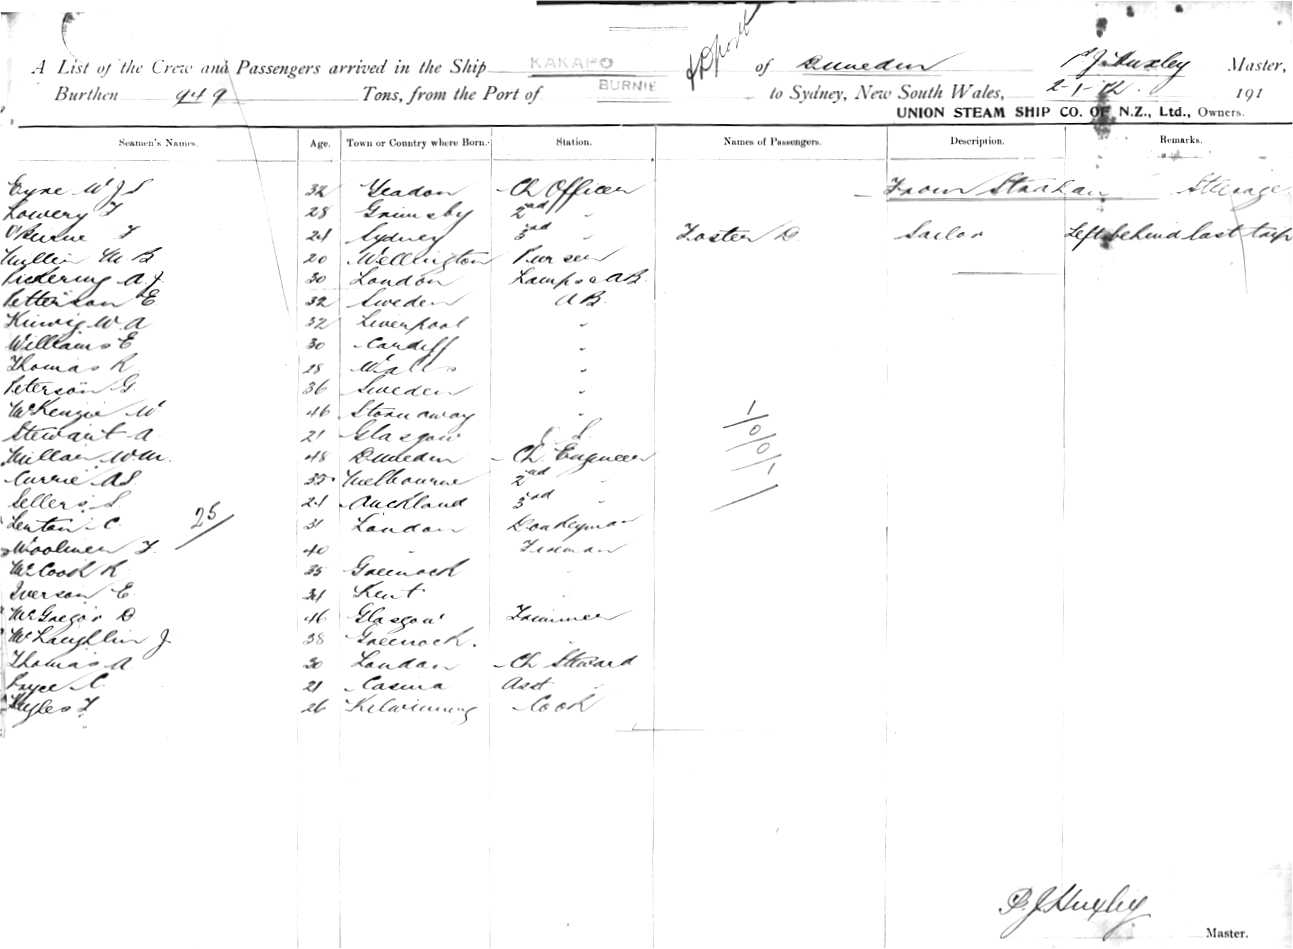 A List of the Crew and Passengers arrived in the Ship KAKAPO of Dunedin P J Huxley Master,
Burthen 949 Tons, from the Port of BURNIE to Sydney, New South Wales, 2-1-12. 191
UNION STEAM SHIP CO. OF N.Z., Ltd., Owners.
Seamen's Names. Age. Town or Country where Born. Station. Names of Passengers. Description. Remarks.
Eyre W J S 32 Yeadon Ch Officer From Strahan Steerage
Lowery F 28 Grimsby 2nd "
O'Burne F 21 Sydney 3rd " Foster D Sailor Left behind last trip
M B 20 Wellington Purser
Pickering A J 30 London Lamps & AB
Petterson E 32 Sweden AB
W A 32 Liverpool "
Williams E 30 Cardiff "
Thomas R 28 Wales "
Peterson G 36 Sweden "
McKenzie W 46 Stornaway "
Stewart A 21 Glasgow
Millar Wm. 48 Dunedin Ch Engineer
Currie AS 35 Melbourne 2nd "
Sellers S 21 Auckland 3rd "
Lenton C 25 31 London Donkeyman
Woolmer F 40 " Fireman
McCook R 35 Greenock "
Iverson E 31 Kent "
McGregor D 46 Glasgow Trimmer
McLaughlin J 38 Greenock. "
Thomas A 30 London Ch Steward
Joyce C 21 Casina Asst "
F 26 Kilwinning Cook
1/0/0/1
P. J Huxley
Master.